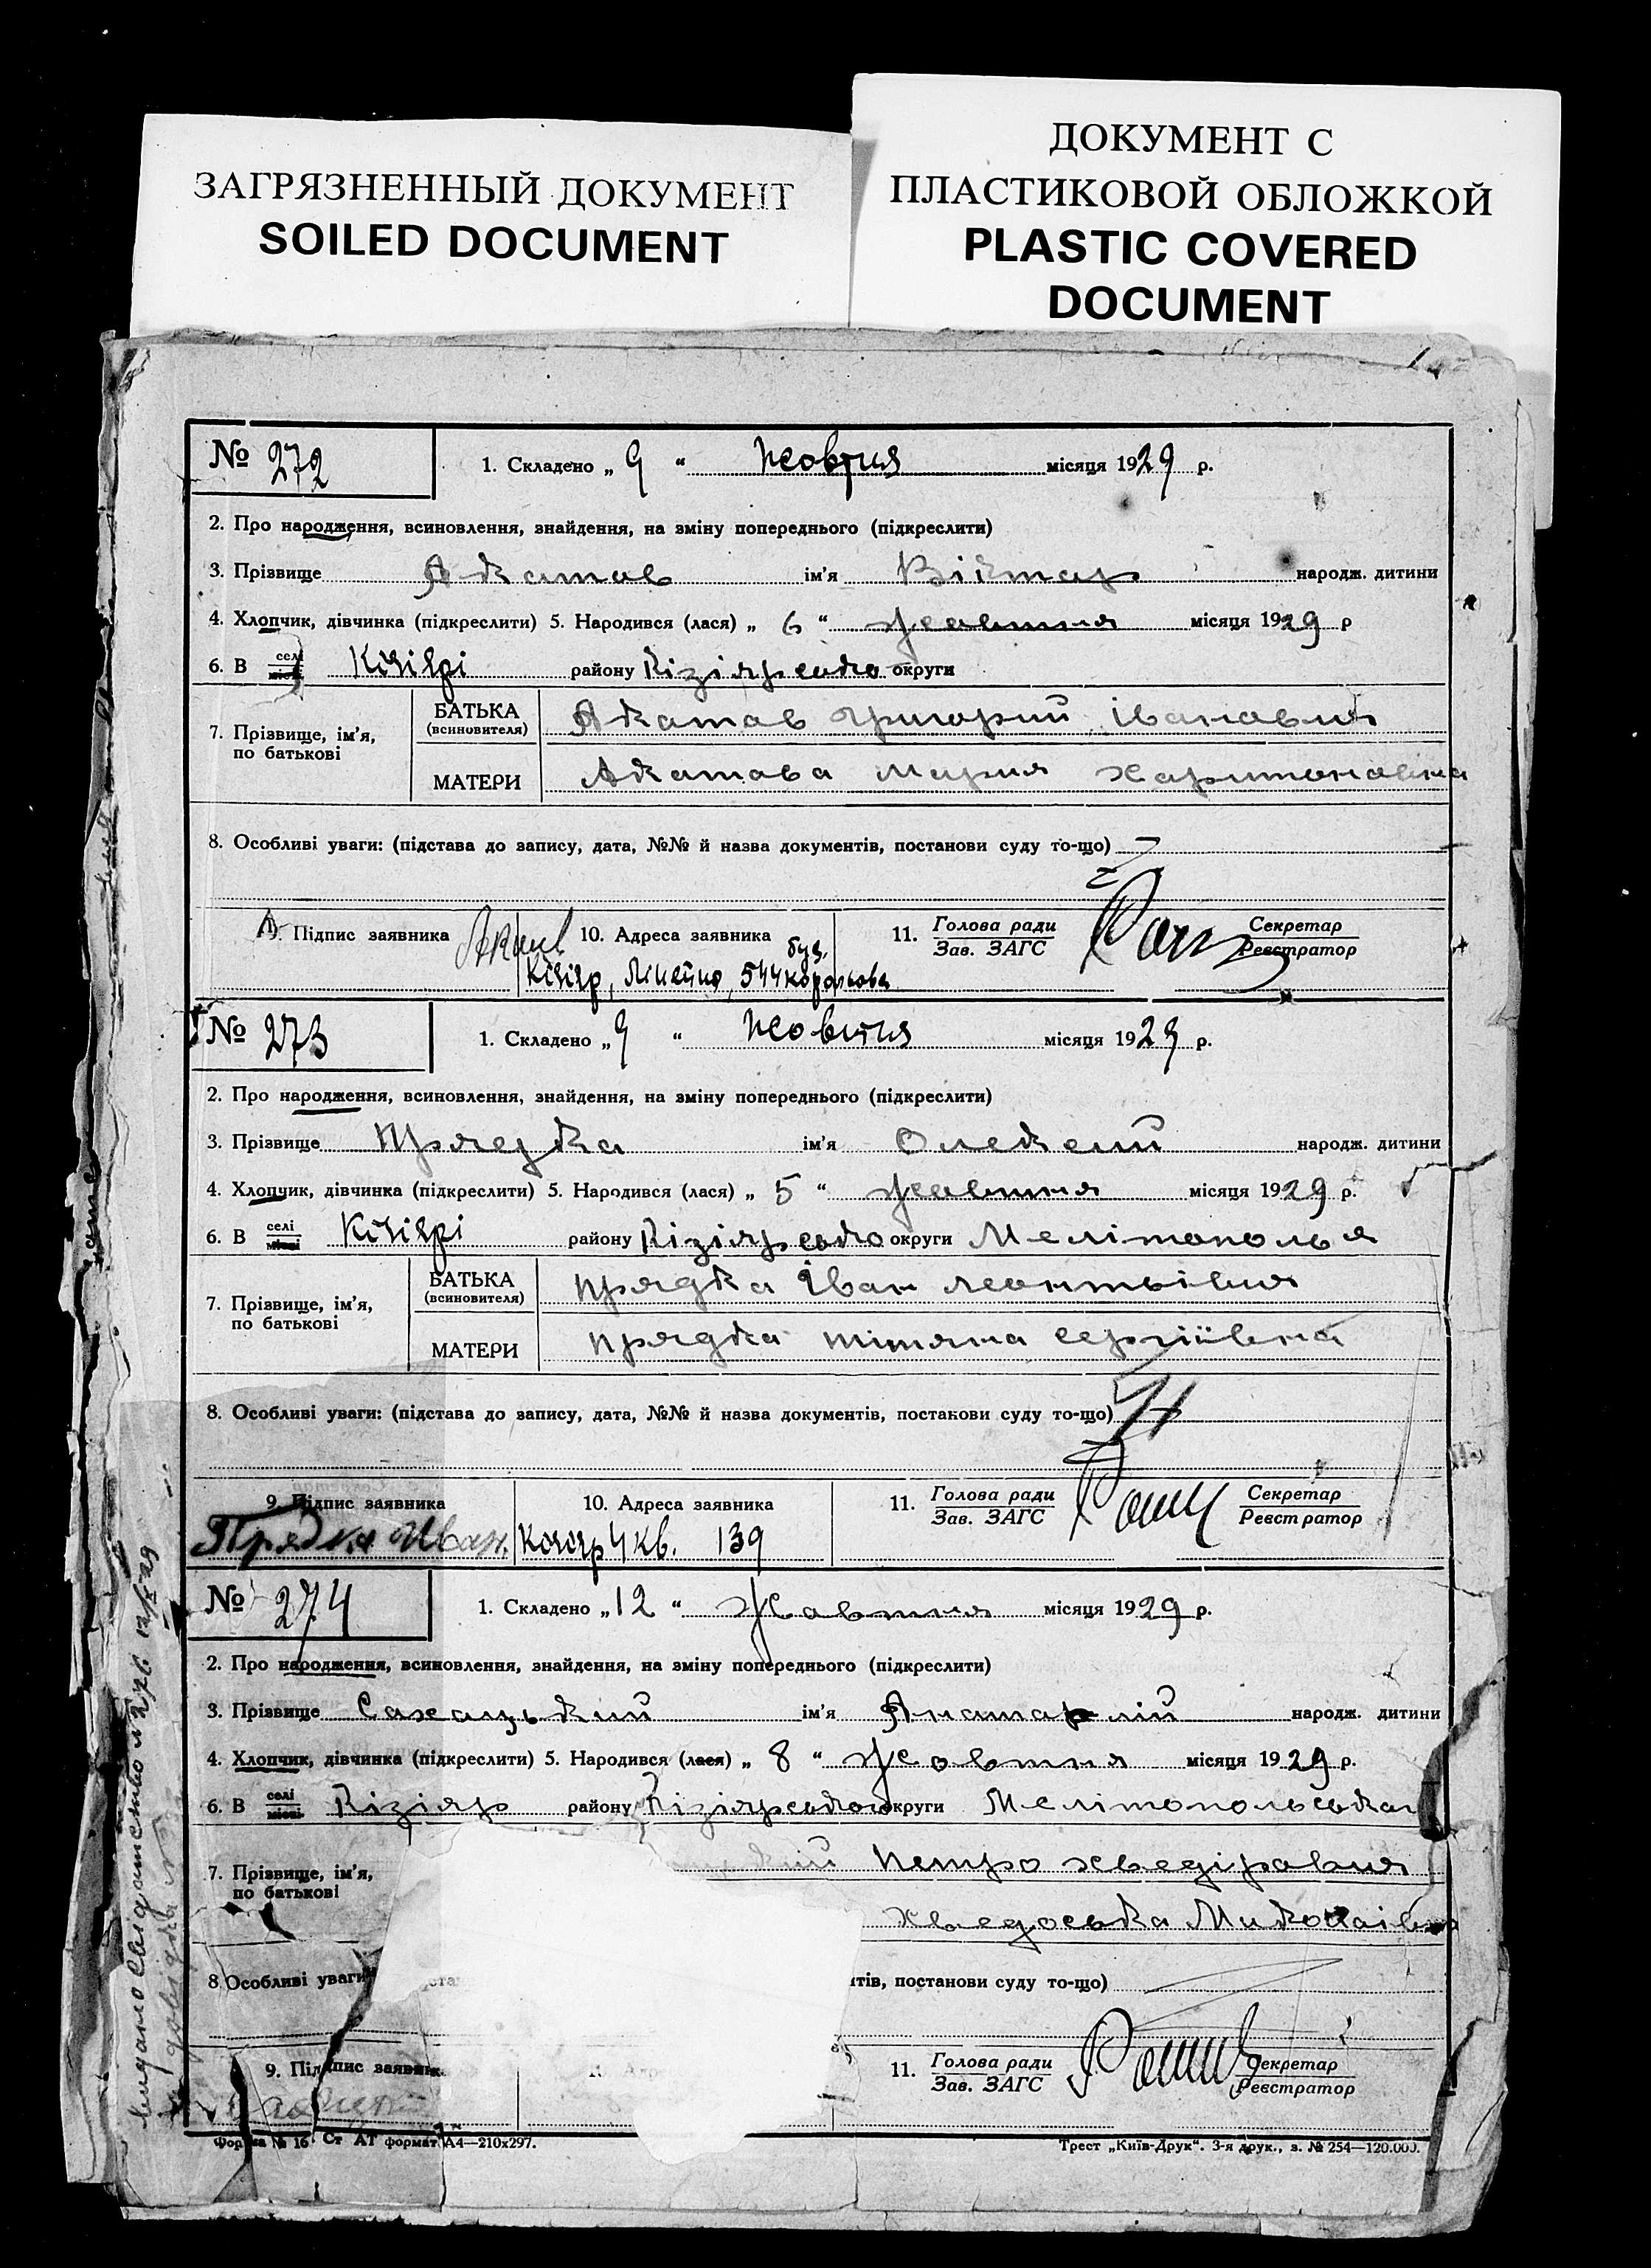 ЗАГРЯЗНЕННЫЙ ДОКУМЕНТ
SOILED DOCUMENT
ДОКУМЕНТ С
ПЛАСТИКОВОЙ ОБЛОЖКОЙ
PLASTIC COVERED
DOCUMENT
№ 272 1. Складено „ 9 “ Жовтня місяця 1929 р.
2. Про народження, всиновлення, знайдення, на зміну попереднього (підкреслити)
3. Прізвище Акатов ім'я Віктар народж. дитини
4. Хлопчик, дівчинка (підкреслити) 5. Народився (лася) „ 6 “ жовтня місяця 1929 р
6. В селі місті Кізіярі району Кізіярсько округи
7. Прізвище, ім'я, по батькові
БАТЬКА (всиновителя) Акатов Григорий Іванович
МАТЕРИ Акатова Мария Харитоновна
8. Особливі уваги: (підстава до запису, дата, №№ й назва документів, постанови суду то-що)
9. Підпис заявника 10. Адреса заявника 11. Голова ради Зав. ЗАГС Секретар Реєстратор
Кізіяр, Лінейно, 544 буд.
№ 273 1. Складено „ 9 “ Жовтня місяця 1929 р.
2. Про народження, всиновлення, знайдення, на зміну попереднього (підкреслити)
3. Прізвище Прядка ім'я Олексій народж. дитини
4. Хлопчик, дівчинка (підкреслити) 5. Народився (лася) „ 5 “ жовтня місяця 1929 р.
6. В селі місті Кізіярі району Кізіярсько округи Мелітополья
7. Прізвище, ім'я, по батькові
БАТЬКА (всиновителя) Прядка Іван Леонтьівич
МАТЕРИ Прядка Тітяна Сергіівна
8. Особливі уваги: (підстава до запису, дата, №№ й назва документів, постанови суду то-що)
9. Підпис заявника 10. Адреса заявника 11. Голова ради Зав. ЗАГС Секретар Реєстратор
Прядка Иван. Кізіяр 4 кв. 139
№ 274 1. Складено „ 12 “ Жовтня місяця 1929 р.
2. Про народження, всиновлення, знайдення, на зміну попереднього (підкреслити)
3. Прізвище Сахацький ім'я Анатолій народж. дитини
4. Хлопчик, дівчинка (підкреслити) 5. Народився (лася) „ 8 “ Жовтня місяця 1929 р.
6. В селі місті Кізіяр району Кізіярського округи Мелітопольська
7. Прізвище, ім'я, по батькові
Петро Хведірович
Хведоська Миколаівна
8. Особливі уваги тів, постанови суду то-що)
9. Підпис заявник 11. Голова ради Зав. ЗАГС Секретар Реєстратор
Форма № 16 Ст АТ формат А4—210х297. Трест „Київ-Друк“. 3-я друк., з. № 254—120.000.
Видано свідоцтво № 276 12/X 29